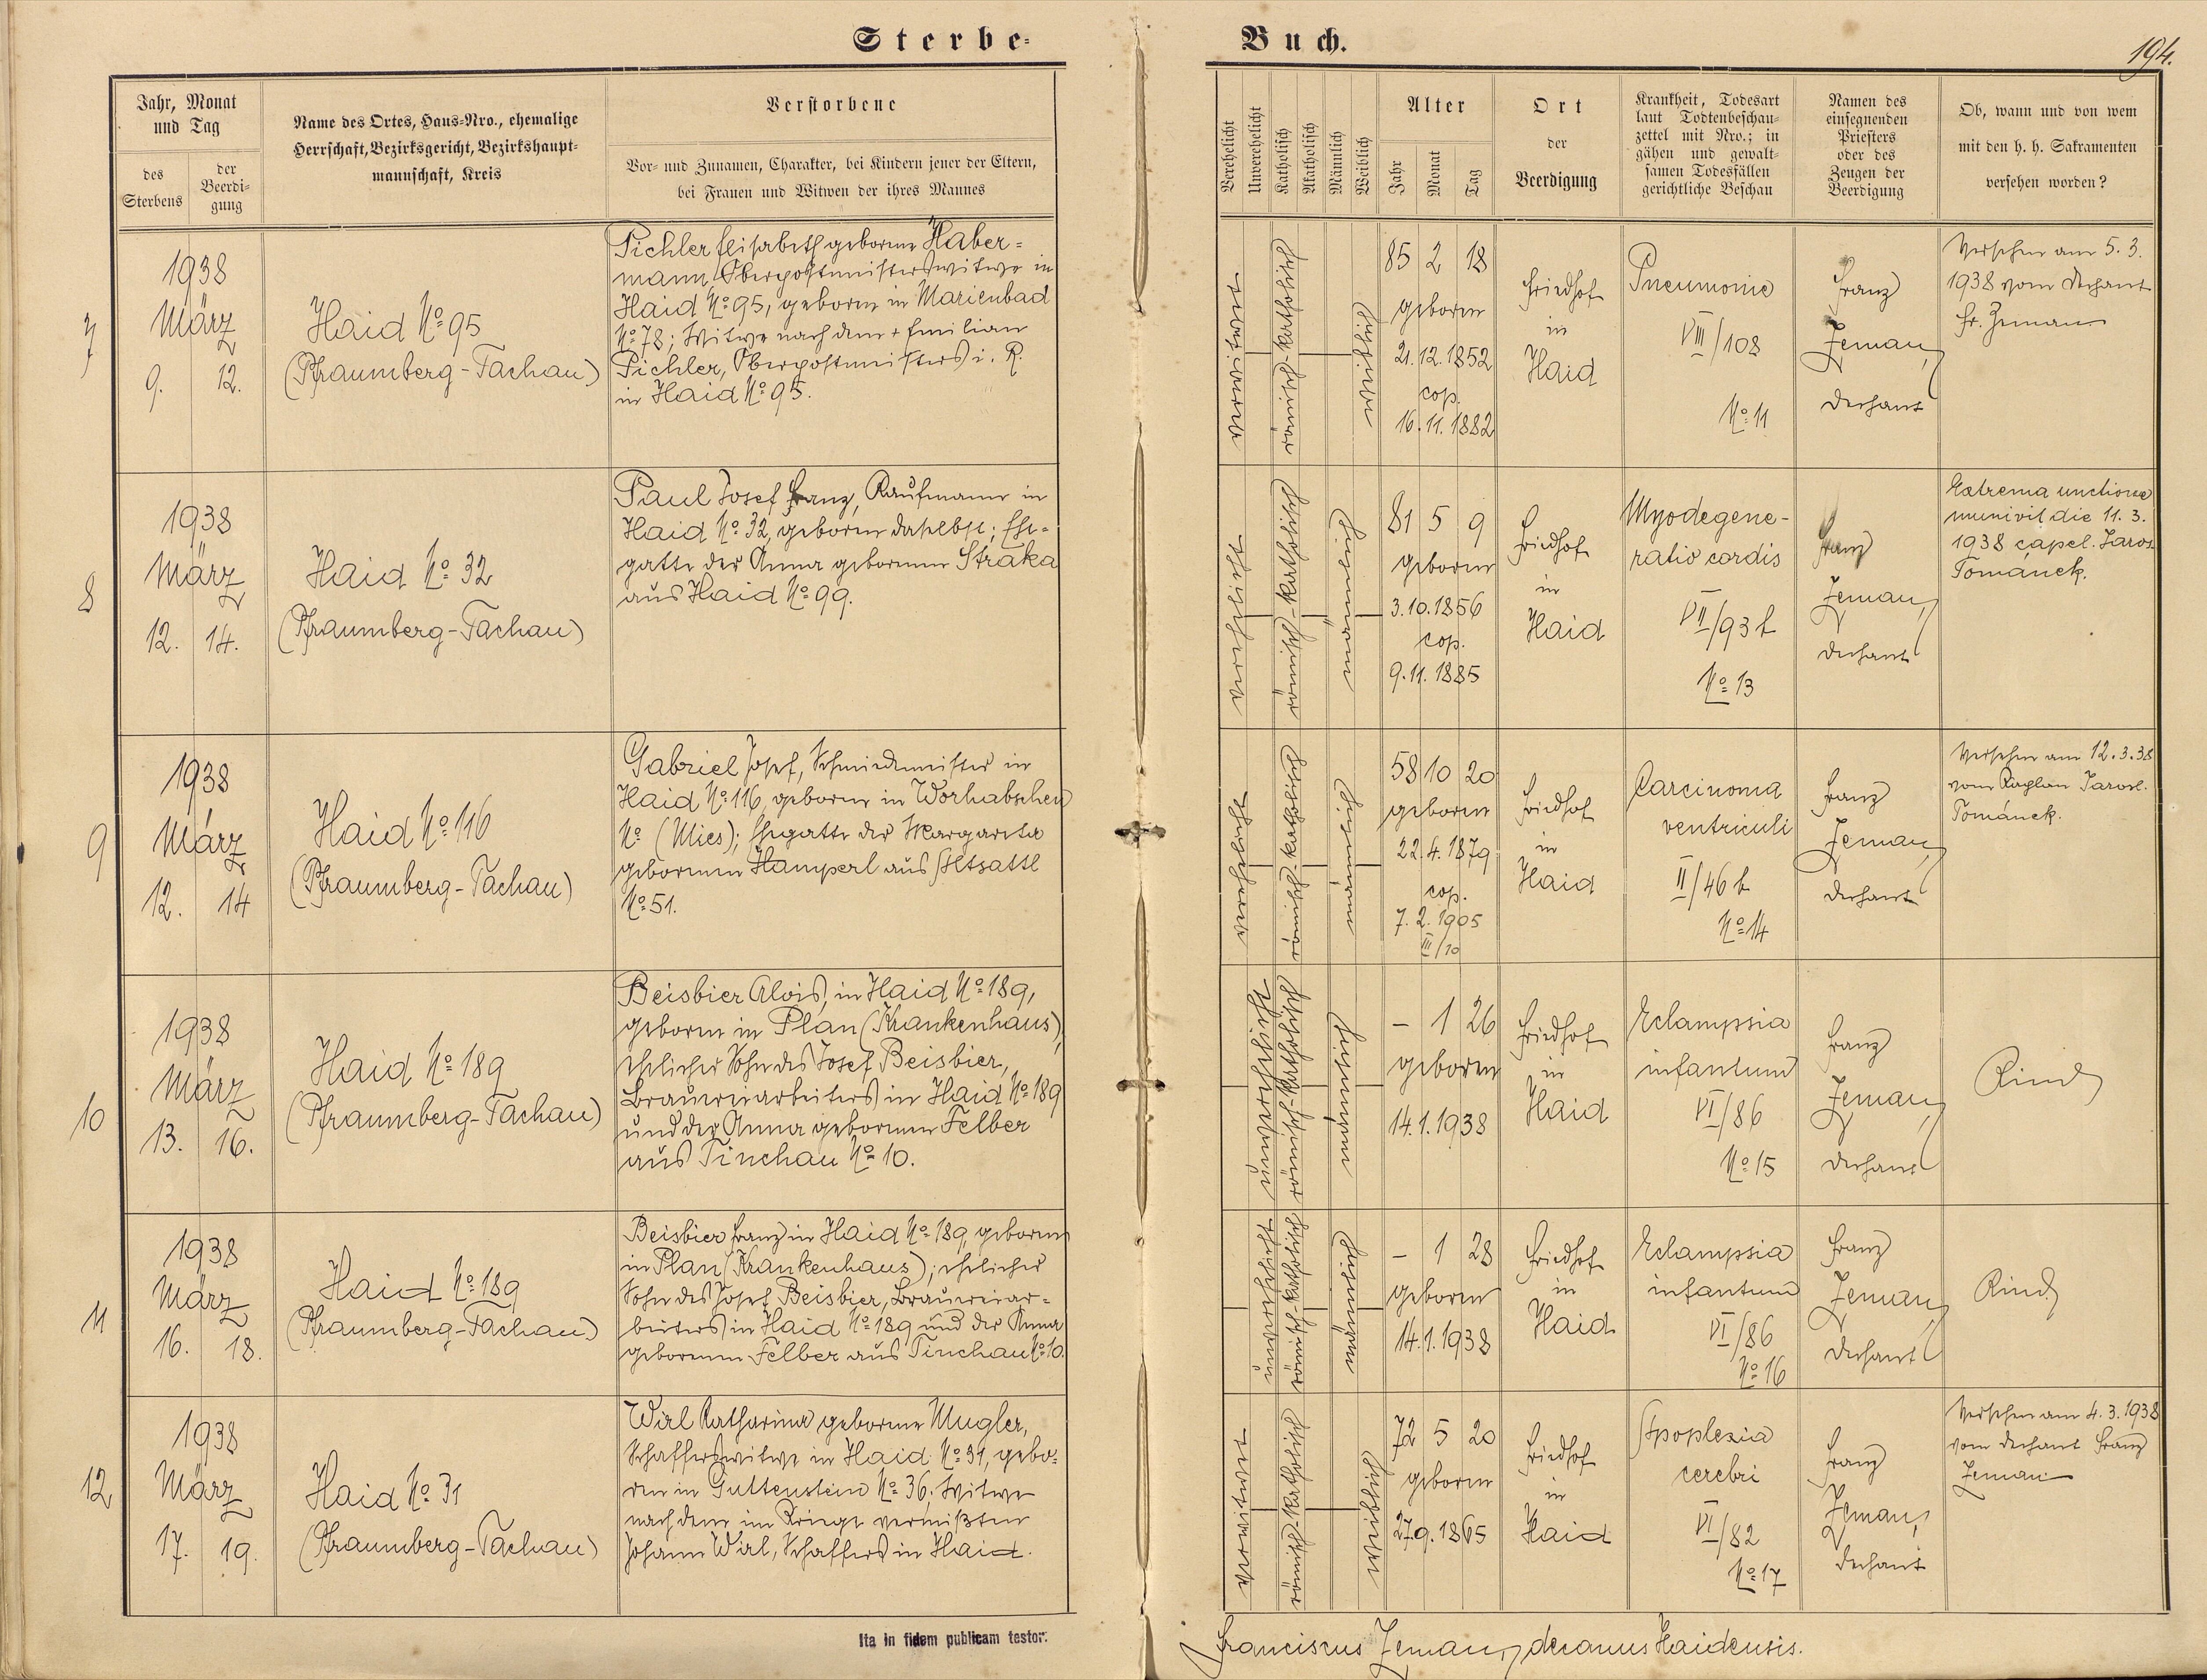 Sterbe-
Buch.
194.
Jahr, Monat
und Tag
des
Sterbens
der
Beerdi-
gung
Name des Ortes, Haus-Nro., ehemalige
Herrschaft, Bezirksgericht, Bezirkshaupt-
mannschaft, Kreis
Verstorbene
Vor- und Zunamen, Charakter, bei Kindern jener der Eltern,
bei Frauen und Witwen der ihres Mannes
Verehelicht
Unverehelicht
Katholisch
Akatholisch
Männlich
Weiblich
Alter
Jahr
Monat
Tag
Ort
der
Beerdigung
Krankheit, Todesart
laut Todtenbeschau-
zettel mit Nro.; in
gähen und gewalt-
samen Todesfällen
gerichtliche Beschau
Namen des
einsegnenden
Priesters
oder des
Zeugen der
Beerdigung
Ob, wann und von wem
mit den h. h. Sakramenten
versehen worden?
7
1938
März
9. 12.
Haid No 95
(Pfraumberg-Tachau)
Pichler Elisabeth geborene Haber-
mann, Oberpostmeisterswitwe in
Haid No 95, geboren in Marienbad
No 78; Witwe nach dem + Emilian
Pichler, Oberpostmeisters i. R.
in Haid No 95.
verwitwet
römisch-katholisch
weiblich
85 2 18
geboren
21.12.1852
cop.
16.11.1882
Friedhof
in
Haid
Pneumonie
VIII/108
No 11
Franz
Zeman,
Dechant
Versehen am 5.3.
1938 vom Dechant
Fr. Zeman
8
1938
März
12. 14.
Haid No 32
(Pfraumberg-Tachau)
Paul Josef Franz, Kaufmann in
Haid No 32, geboren daselbst; Ehe-
gatte der Anna geborenen Straka
aus Haid No 99.
verehelicht
römisch-katholisch
männlich
81 5 9
geboren
3.10.1856
cop.
9.11.1885
Friedhof
in
Haid
Myodegene-
ratio cordis
VII/93 b
No 13
Franz
Zeman,
Dechant
Extrema unctione
munivit die 11.3.
1938 capel. Jaros.
Tománek.
9
1938
März
12. 14
Haid No 116
(Pfraumberg-Tachau)
Gabriel Josef, Schmiedemeister in
Haid No 116, geboren in Worhabschen
No (Mies); Ehegatte der Margareta
geborenen Hamperl aus Altsattl
No 51.
verehelicht
römisch-katholisch
männlich
58 10 20
geboren
22.4.1879
cop.
7.2.1905
III/10
Friedhof
in
Haid
Carcinoma
ventriculi
II/46 b
No 14
Franz
Zeman,
Dechant
Versehen am 12.3.38
vom Kaplan Jarosl.
Tománek.
10
1938
März
13. 16.
Haid No 189
(Pfraumberg-Tachau)
Beisbier Alois, in Haid No 189,
geboren in Plan (Krankenhaus),
ehelicher Sohn des Josef Beisbier,
Brauereiarbeiters in Haid No 189
und der Anna geborenen Felber
aus Tinchau No 10.
unverehelicht
römisch-katholisch
männlich
- 1 26
geboren
14.1.1938
Friedhof
in
Haid
Eclampsia
infantum
VI/86
No 15
Franz
Zeman,
Dechant
Kind
11
1938
März
16. 18.
Haid No 189
(Pfraumberg-Tachau)
Beisbier Franz in Haid No 189, geboren
in Plan (Krankenhaus); ehelicher
Sohn des Josef Beisbier, Brauereiar-
beiters in Haid No 189 und der Anna
geborenen Felber aus Tinchau No 10.
unverehelicht
römisch-katholisch
männlich
- 1 28
geboren
14.1.1938
Friedhof
in
Haid
Eclampsia
infantum
VI/86
No 16
Franz
Zeman,
Dechant
Kind
12
1938
März
17. 19.
Haid No 31
(Pfraumberg-Tachau)
Wirl Katharina geborene Mugler,
Schafferswitwe in Haid No 31, gebo-
ren in Guttenstein No 36; Witwe
nach dem im Kriege vermißten
Johann Wirl, Schaffers in Haid.
verwitwet
römisch-katholisch
weiblich
72 5 20
geboren
27.9.1865
Friedhof
in
Haid
Apoplexia
cerebri
VI/82
No 17
Franz
Zeman,
Dechant
Versehen am 4.3.1938
vom Dechant Franz
Zeman
Ita in fidem publicam testor:
Franciscus Zeman, decanus Haidensis.